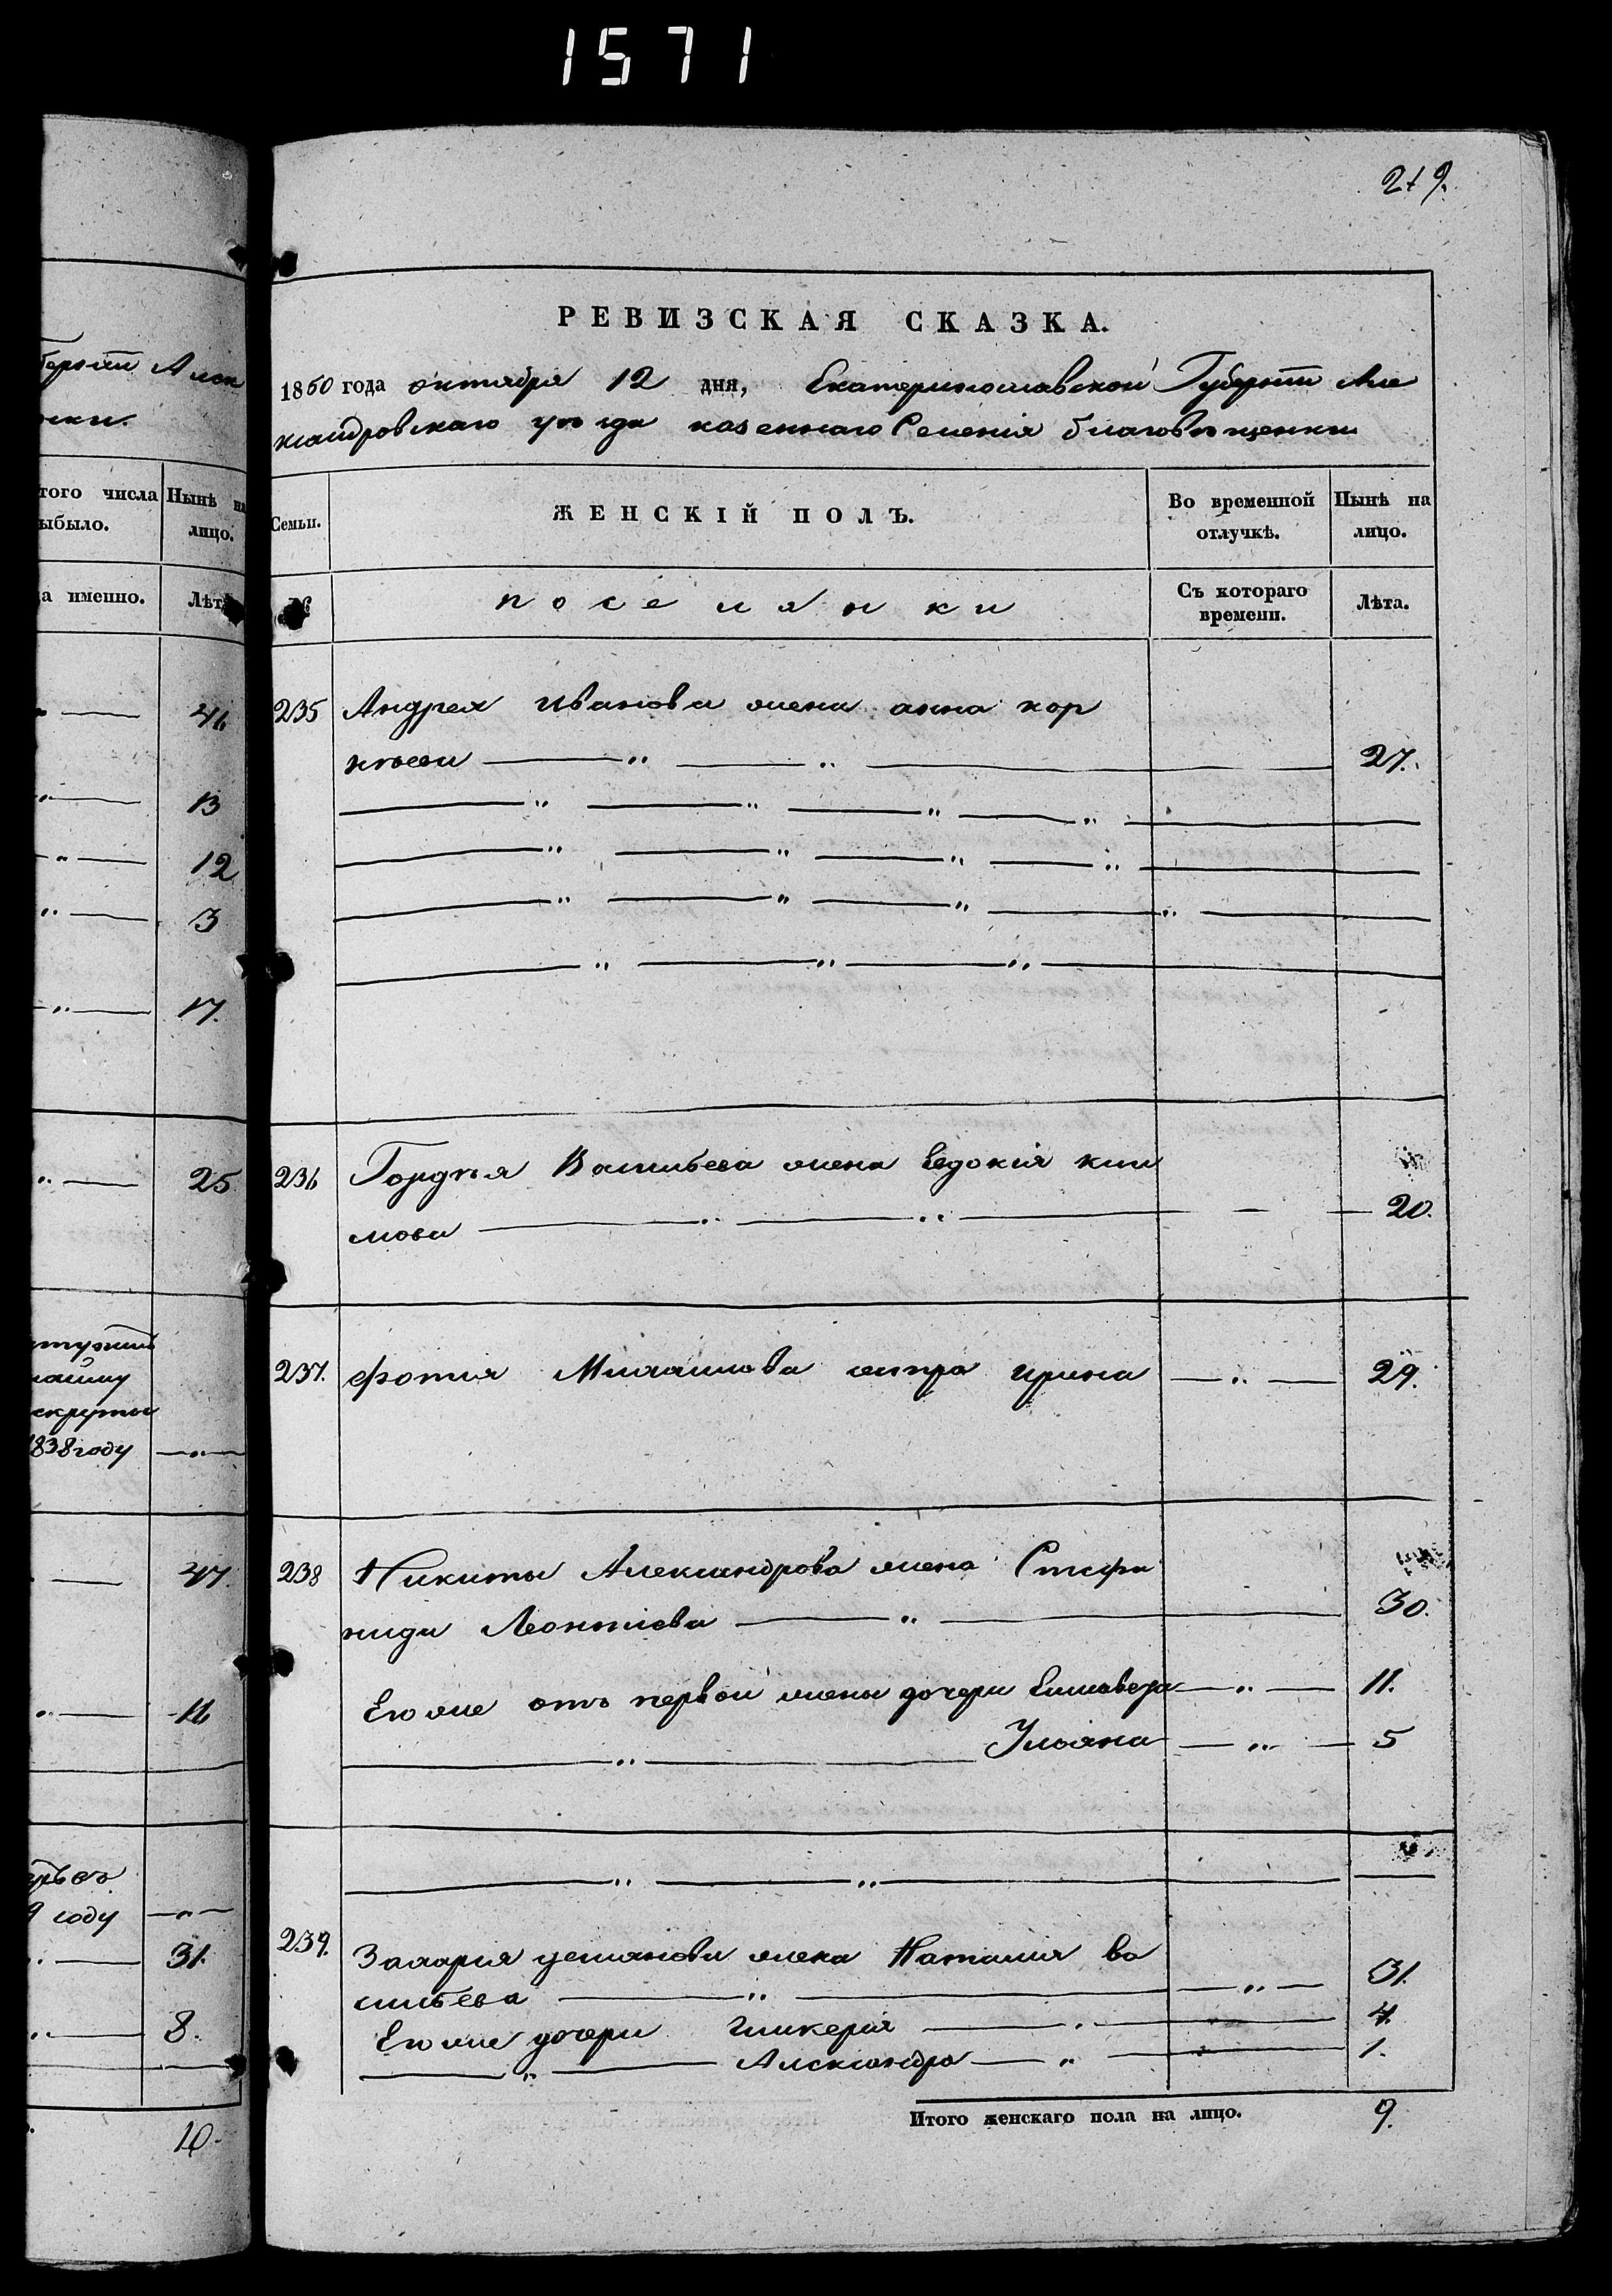 1571
219.
РЕВИЗСКАЯ СКАЗКА.
1850 года октября 12 дня, Екатеринославской Губерніи Але
ксандровскаго уѣзда казеннаго Селенія благовѣщенки
Семьи.
ЖЕНСКІЙ ПОЛЪ.
Во временной отлучкѣ.
Нынѣ на лицо.
№
поселянки
Съ котораго времени.
Лѣта.
235 Андрея Иванова жена анна кор
нѣева — „ — „ — 27.
236 Гордѣя Васильева жена Евдокія кли
мова — „ — „ — 20.
237. фотия Михайлова сестра ирина — „ — 29.
238 Никиты Александрова жена Стефа
нида Леонтіева — „ — 30.
Его же отъ первой жены дочери Елисавета — „ — 11.
— „ — Ульяна — „ — 5
239. Захарія устинова жена Наталия ва
сильева — „ — „ — 31.
Его же дочери Гликерія — „ — 4.
— „ — Александра — „ — 1.
Итого женскаго пола на лицо. 9.
того числа
ыбыло.
Нынѣ на
лицо.
да именно.
Лѣта
46
13
12
3
17.
25
1838 году — „ —
47.
16
9 году — „ —
31.
8.
10.